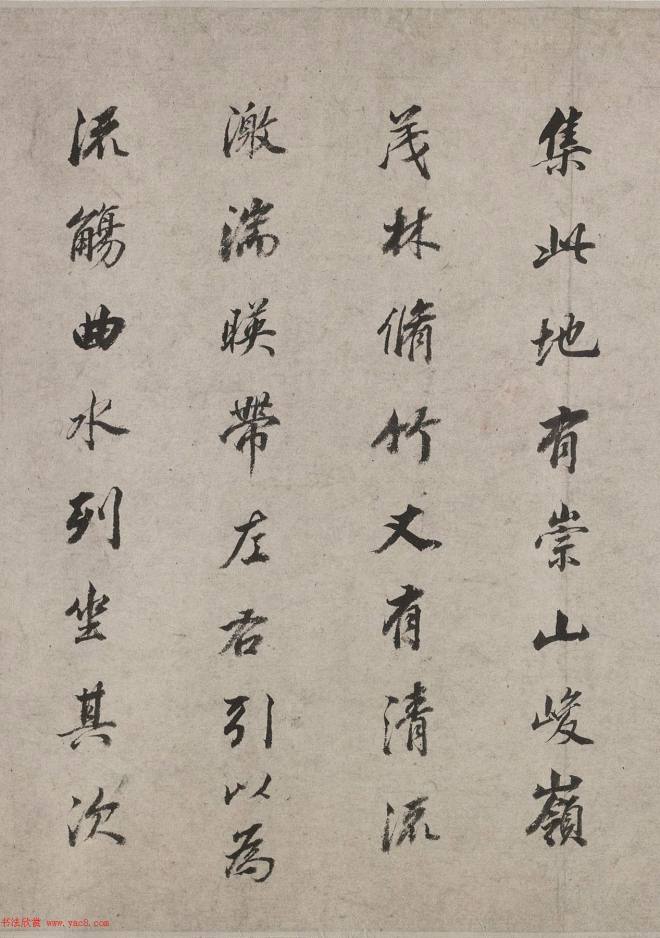 集此地有崇山峻嶺
茂林脩竹又有清流
激湍暎帶左右引以為
流觴曲水列坐其次
书法欣赏 www.yac8.com